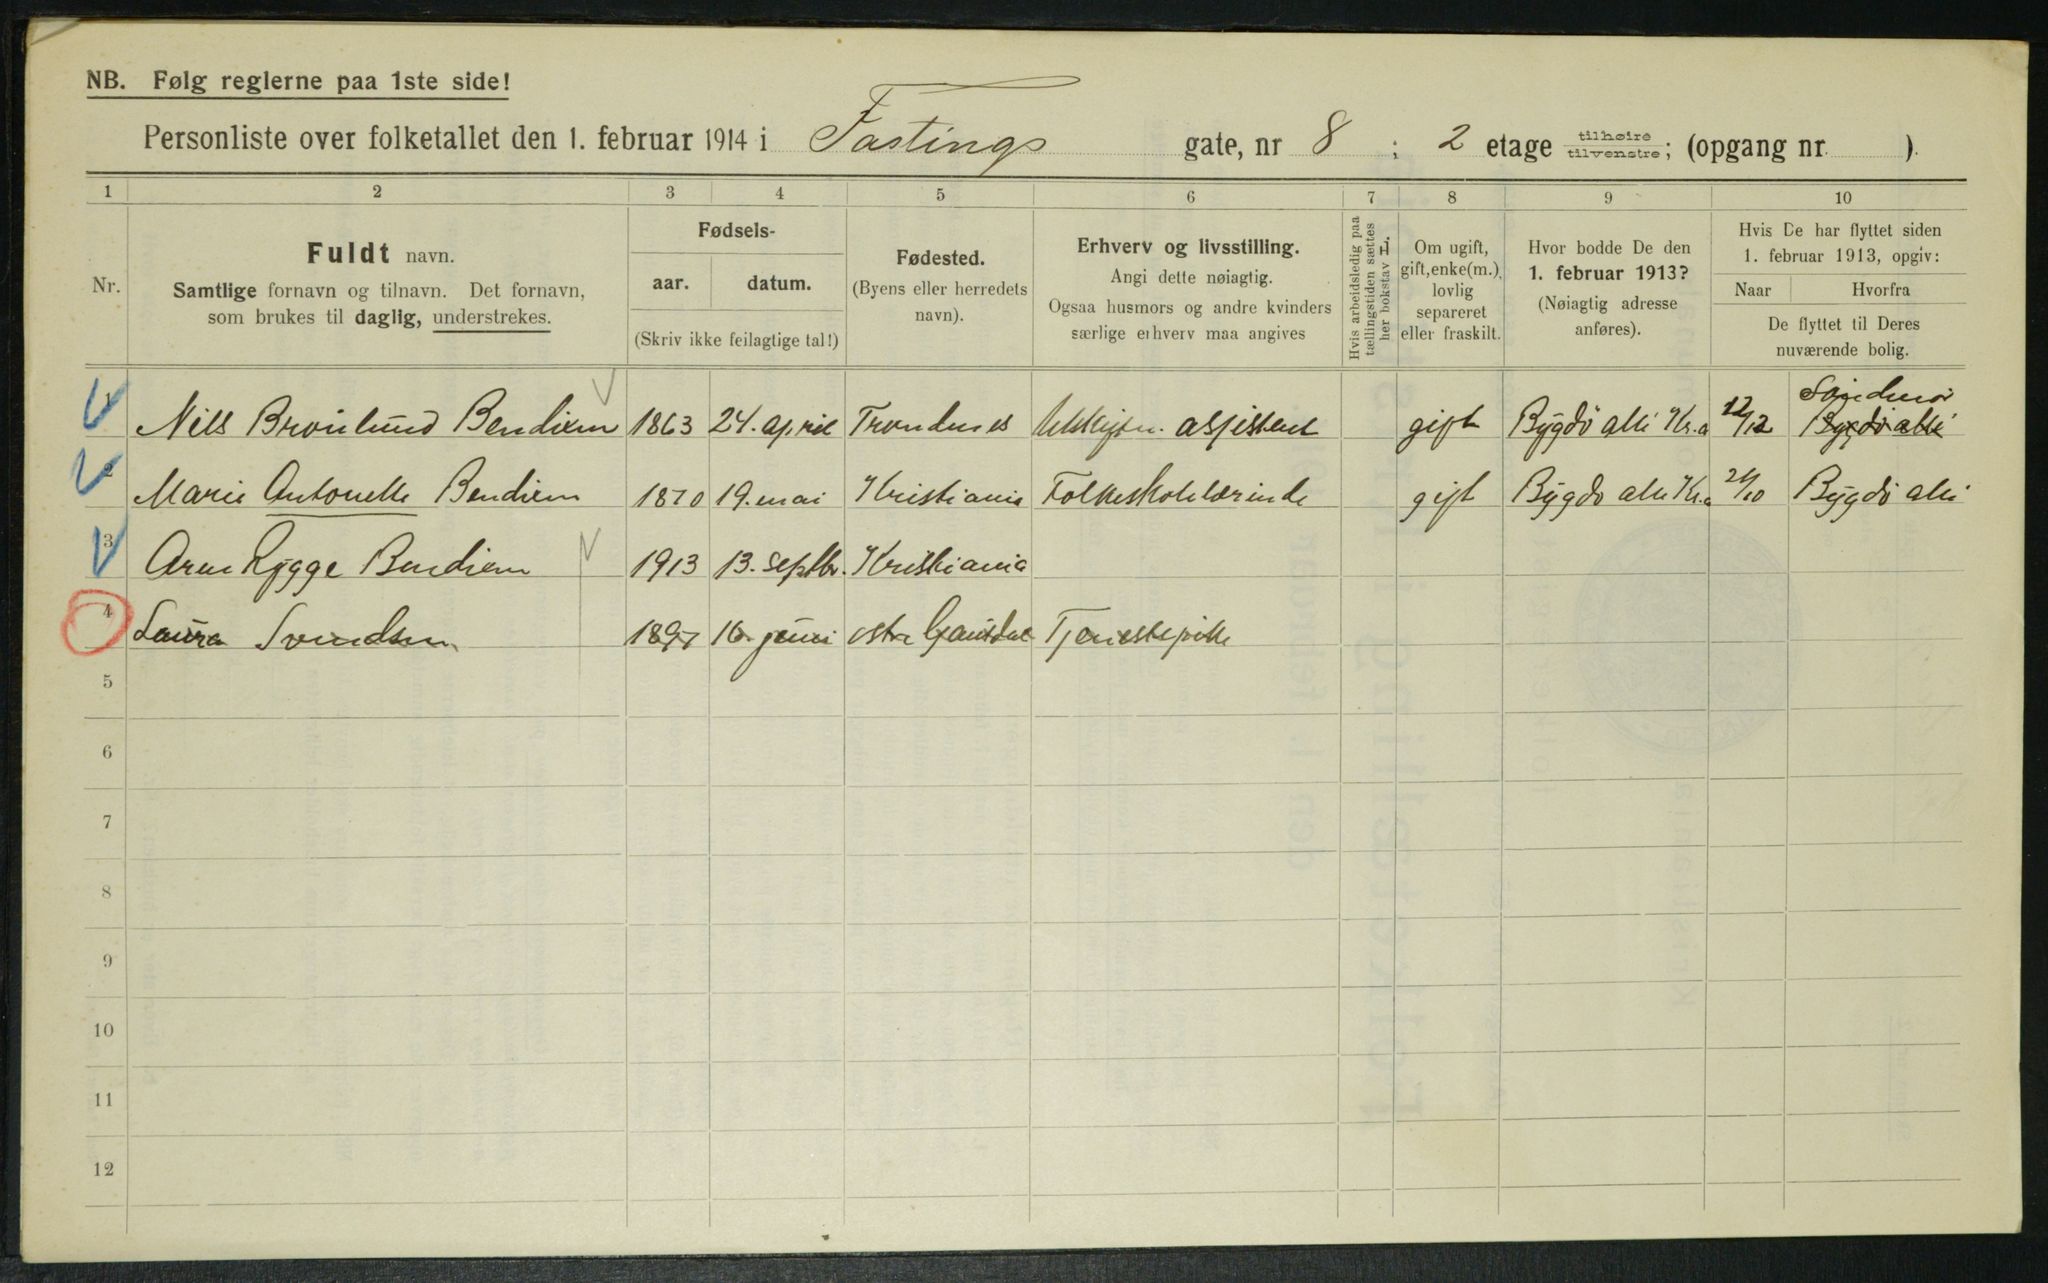 NB. Følg reglerne paa 1ste side!
Personliste over folketallet den 1. februar 1914 i Fastings gate, nr 8 ; 2 etage tilhøire tilvenstre; (opgang nr. ).
1 2 3 4 5 6 7 8 9 10
Nr.
Fuldt navn.
Samtlige fornavn og tilnavn. Det fornavn,
som brukes til daglig, understrekes.
Fødsels-
aar. datum.
(Skriv ikke feilagtige tal!)
Fødested.
(Byens eller herredets
navn).
Erhverv og livsstilling.
Angi dette nøiagtig.
Ogsaa husmors og andre kvinders
særlige erhverv maa angives
Hvis arbeidsledig paa
tællingstiden sættes
her bokstav L.
Om ugift,
gift, enke(m.),
lovlig
separeret
eller fraskilt.
Hvor bodde De den
1. februar 1913?
(Nøiagtig adresse
anføres).
Hvis De har flyttet siden
1. februar 1913, opgiv:
Naar Hvorfra
De flyttet til Deres
nuværende bolig.
1 Nils Bronlund Bendixen 1863 24. april Trondenes assistent gift Bygdö allé Kr.a 12/12 Bygdö allé
2 Marie Antonette Bendixen 1870 19. mai Kristiania Folkeskolelærinde gift Bygdö allé Kr.a 24/10 Bygdö allé
3 Rygge Bendixen 1913 13. septbr. Kristiania
4 Laura Svendsen 1897 16. juni østre Gausdal Tjenestepike
5
6
7
8
9
10
11
12